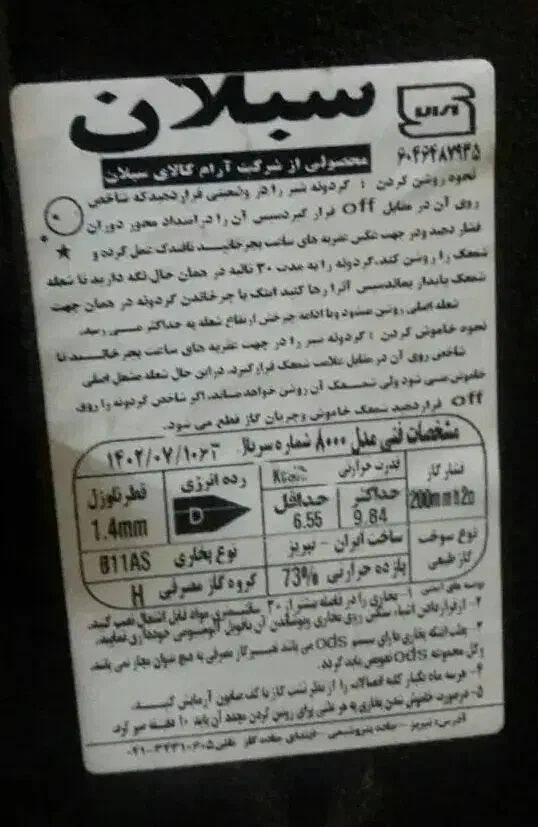 سبلان
محصولی از شرکت آرام کالای سبلان
۶۰۴۶۴۸۷۹۳۵
نحوه روشن کردن : گردونه شیر را در وضعیتی قرار دهید که شاخص
روی آن در مقابل off قرار گیرد سپس آن را در امتداد محور دوران
فشار دهید و در جهت عکس عقربه های ساعت بچرخانید تا فندک عمل کرده و
شمعک را روشن کند. گردونه را به مدت ۳۰ ثانیه در همان حال نگه دارید تا شعله
شمعک پایدار بماند سپس آنرا رها کنید اینک با چرخاندن گردونه در همان جهت
شعله اصلی روشن میشود و با ادامه چرخش ارتفاع شعله به حداکثر می رسد.
نحوه خاموش کردن : گردونه شیر را در جهت عقربه های ساعت بچرخانید تا
شاخص روی آن در مقابل علامت شمعک قرار گیرد. در این حال شعله مشعل اصلی
خاموش می شود ولی شمعک آن روشن خواهد ماند. اگر شاخص گردونه را روی
off قرار دهید شمعک خاموش و جریان گاز قطع می شود.
مشخصات فنی مدل ۸۰۰۰ شماره سریال ۱۴۰۲/۰۷/۱۰۶۳
فشار گاز
200mmh2o
قدرت حرارتی
حداکثر
9.84
حداقل
6.55
رده انرژی
D
قطر نازل
1.4mm
نوع سوخت
گاز طبیعی
ساخت ایران - تبریز
نوع بخاری
B11AS
بازده حرارتی %73
گروه گاز مصرفی H
توصیه های ایمنی : ۱- بخاری را در فاصله بیشتر از ۳۰ سانتیمتری مواد قابل اشتعال نصب کنید.
۲- از قرار دادن اشیاء سنگین روی بخاری و پوشاندن آن خودداری نمایید.
۳- بعلت اینکه بخاری دارای سیستم ods می باشد تغییر گاز مصرفی به هیچ عنوان مجاز نمی باشد.
و کل مجموعه ods تعویض باید گردد.
۴- هر سه ماه یکبار کلیه اتصالات را از نظر نشت گاز با کف صابون آزمایش کنید.
۵- در صورت خاموش شدن بخاری به هر علتی برای روشن کردن مجدد آن باید ۱۰ دقیقه صبر کرد.
آدرس: تبریز - جاده
تلفن ۰۴۱-۳۴۳۱۰۶۰۵